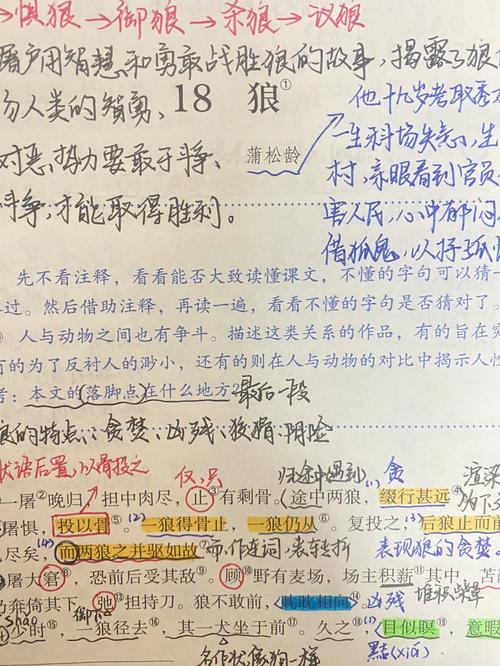 →惧狼→御狼→杀狼→议狼
屠户用智慧和勇敢战胜狼的故事,揭露了狼
人类的智勇、
18 狼①
蒲松龄
对恶势力要敢于斗争、
斗争,才能取得胜利。
他十九岁考取秀
一生科场失意,生
村,亲眼看到官员
害人民,心中郁闷
借狐鬼,以抒孤
先不看注释,看看能否大致读懂课文,不懂的字句可以猜一
过。然后借助注释,再读一遍,看看不懂的字句是否猜对了。
人与动物之间也有争斗。描述这类关系的作品,有的旨在突
的为了反衬人的渺小,还有的则在人与动物的对比中揭示人性
考:本文的落脚点在什么地方?
最后一段
狼的特点:贪婪、凶残、狡猾、阴险
状语后置,以骨投之
仅、只
归途中遇到
(1)贪
渲染
一屠②晚归,担中肉尽,止③有剩骨。途中两狼,缀行甚远④
为下
屠惧,投以骨⑤。(2)一狼得骨止,一狼仍从⑥。复投之,(3)后狼止而前
尽矣,(4)而两狼之并驱如故⑦
而,作连词,表转折
表现狼的贪婪
屠大窘⑧,恐前后受其敌⑨。顾⑩野有麦场,场主积薪⑪其中,苫
堆积柴草
奔倚其下,弛⑬担持刀。狼不敢前,眈眈相向⑭
凶残
shǎo
卸下
少时⑮,一狼径去⑯,其一犬坐于前⑰。久之⑱,(1)目似瞑⑲,意暇
名作状,像狗一样
黠(xiá)